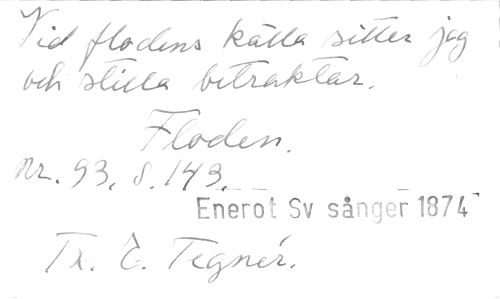 Vid flodens källa sitter jag
och stilla betraktar.
Floden.
Nr. 93, s. 149.
Enerot Sv sånger 1874
Tx. E. Tegnér.